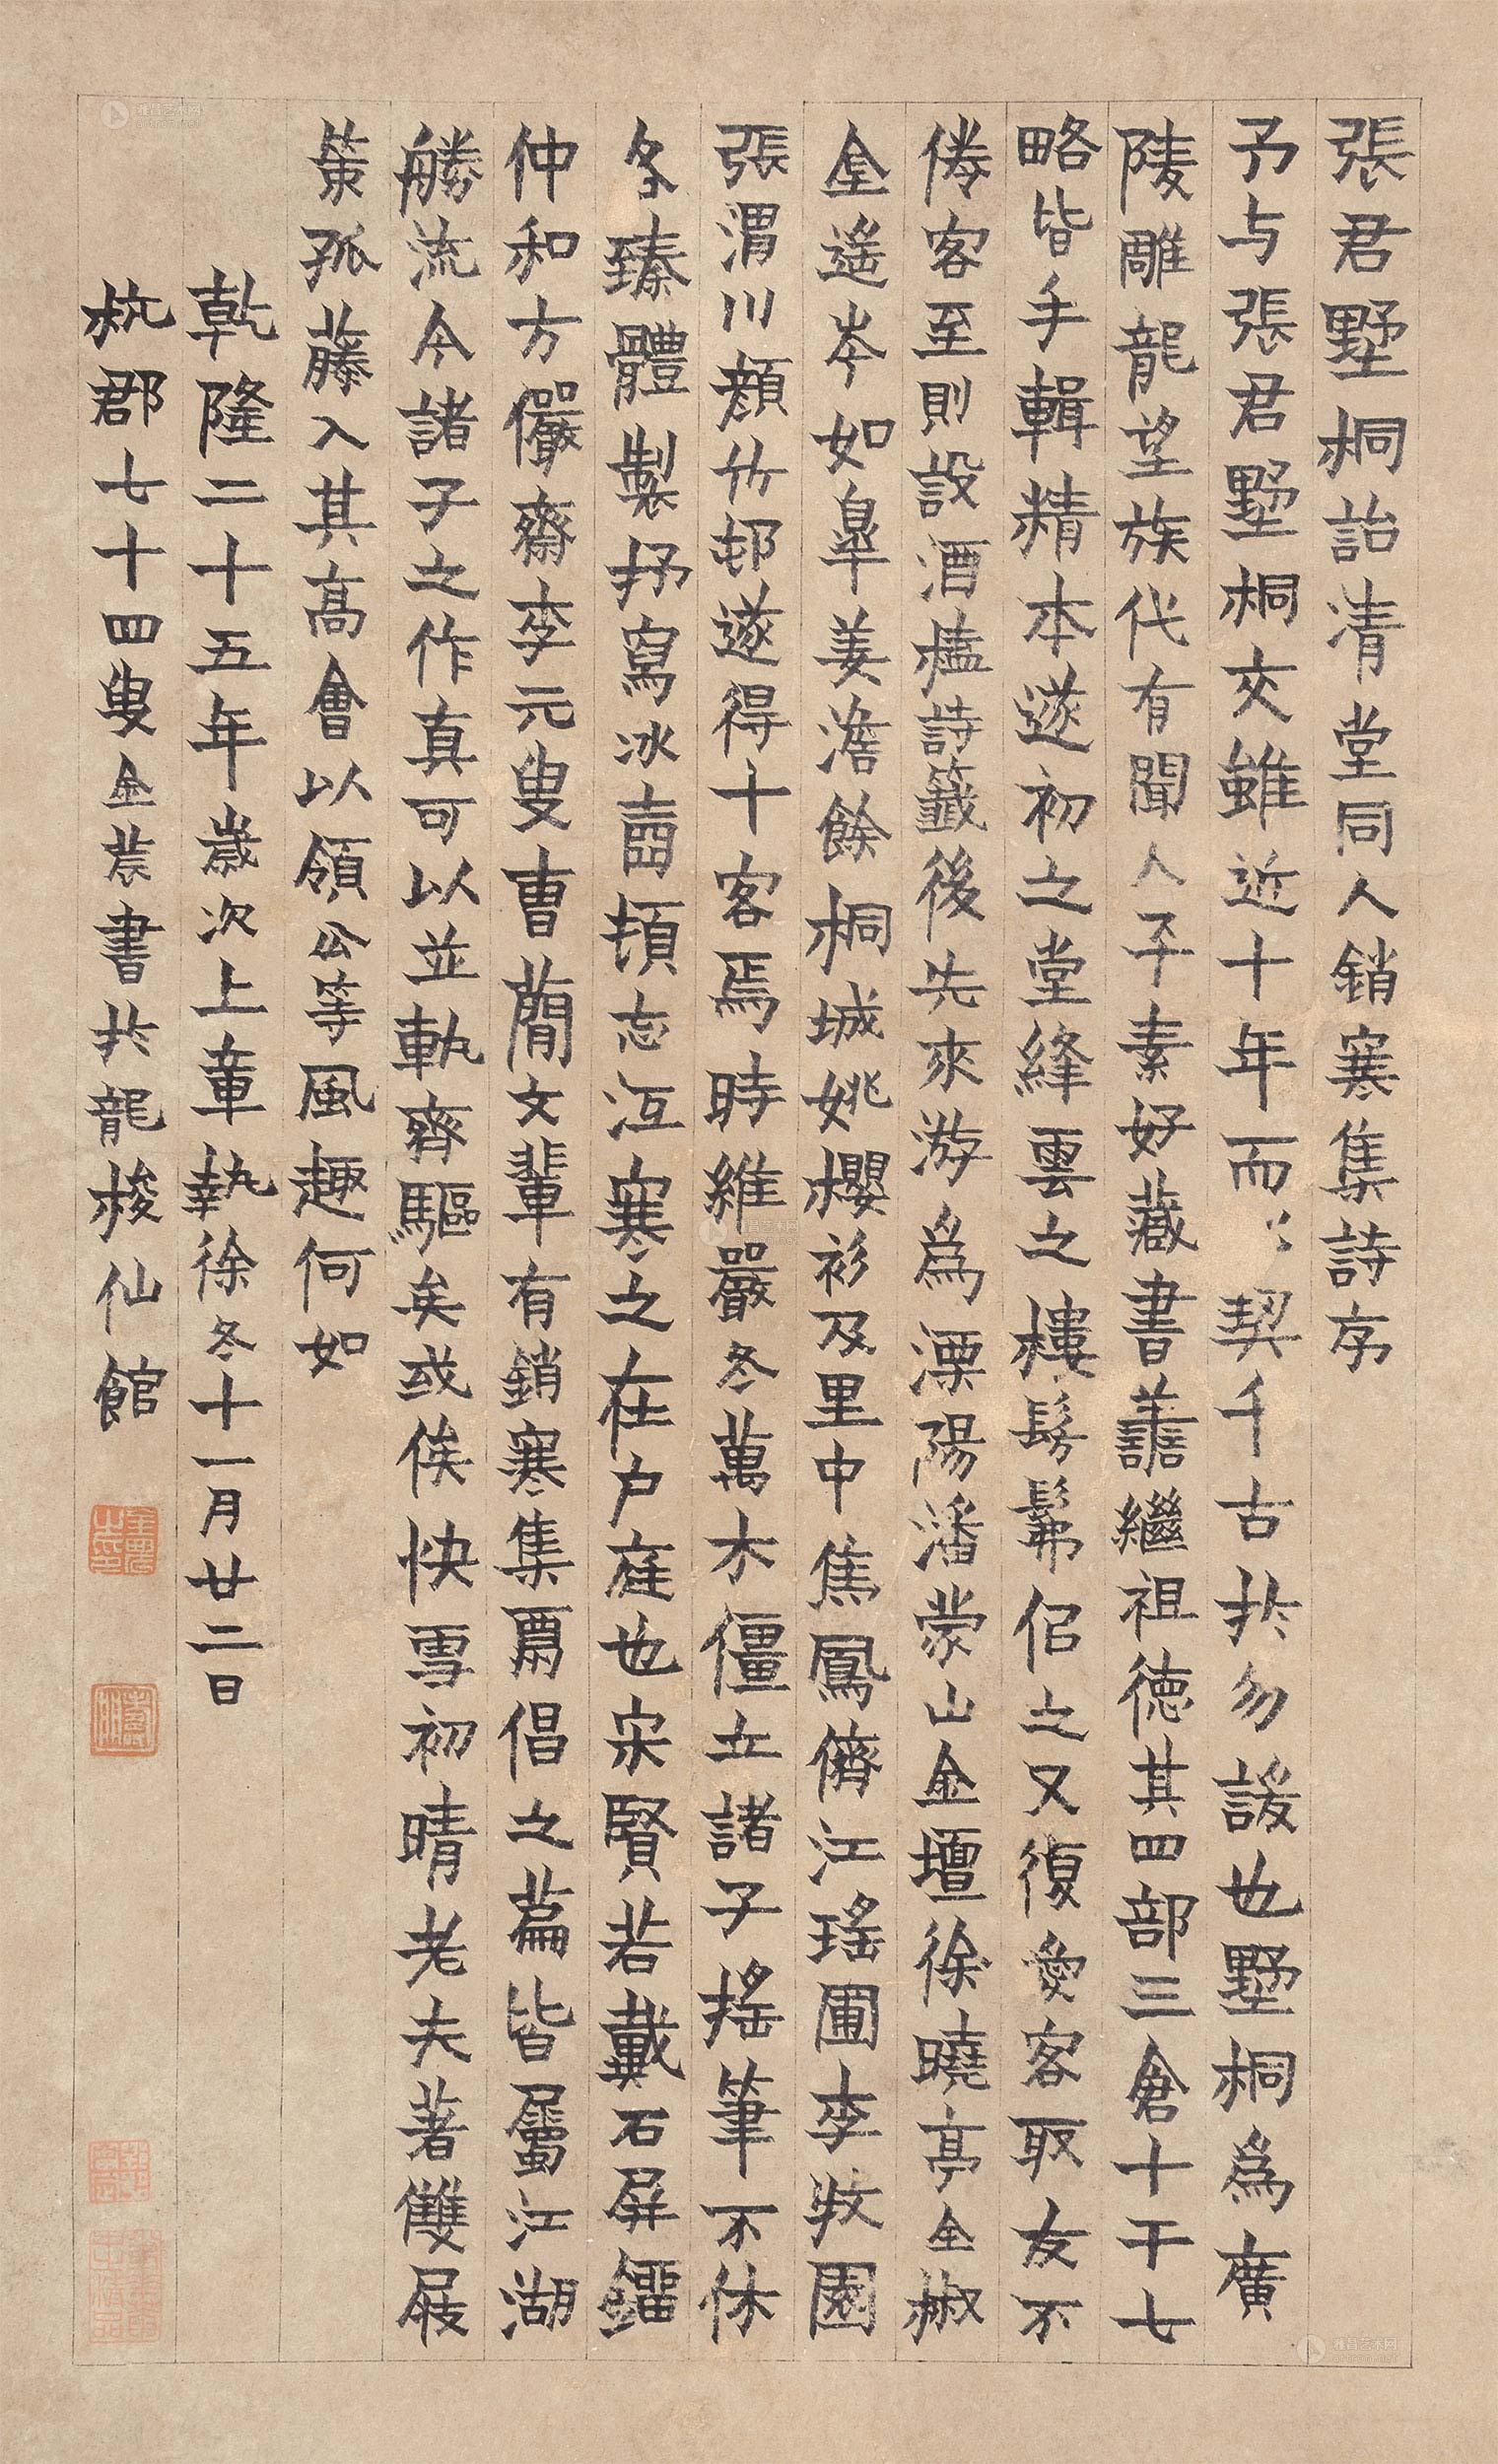 張君墅桐詒清堂同人銷寒集詩序
予与張君墅桐交雖近十年而〻契千古扵勿諼也墅桐為廣
陵雕龍望族代有聞人子素好藏書譱繼祖徳其四部三倉十干七
略皆手輯精本遂初之堂絳雲之樓髣髴侣之又復愛客取友不
倦客至則設酒榼詩籤後先來游為溧陽潘蒙山金壇徐曉亭全椒
金遙岑如皋姜澹餘桐城姚櫻衫及里中焦鳳儕江瑤圃李牧園
張渭川顏竹邨遂得十客焉時維嚴冬萬木僵立諸子搖筆不休
各臻體製抒寫冰囱頓忘沍寒之在户庭也宋賢若戴石屏鐳
仲和方儼齋李元叟曹蕳文輩有銷寒集爾倡之篇皆屬江湖
勝流今諸子之作真可以並軌齊驅矣或俟快雪初晴老夫著雙屐
策孤藤入其高會以領公等風趣何如
乾隆二十五年歲次上章執徐冬十一月廿二日
杭郡七十四叟金農書扵龍梭仙館